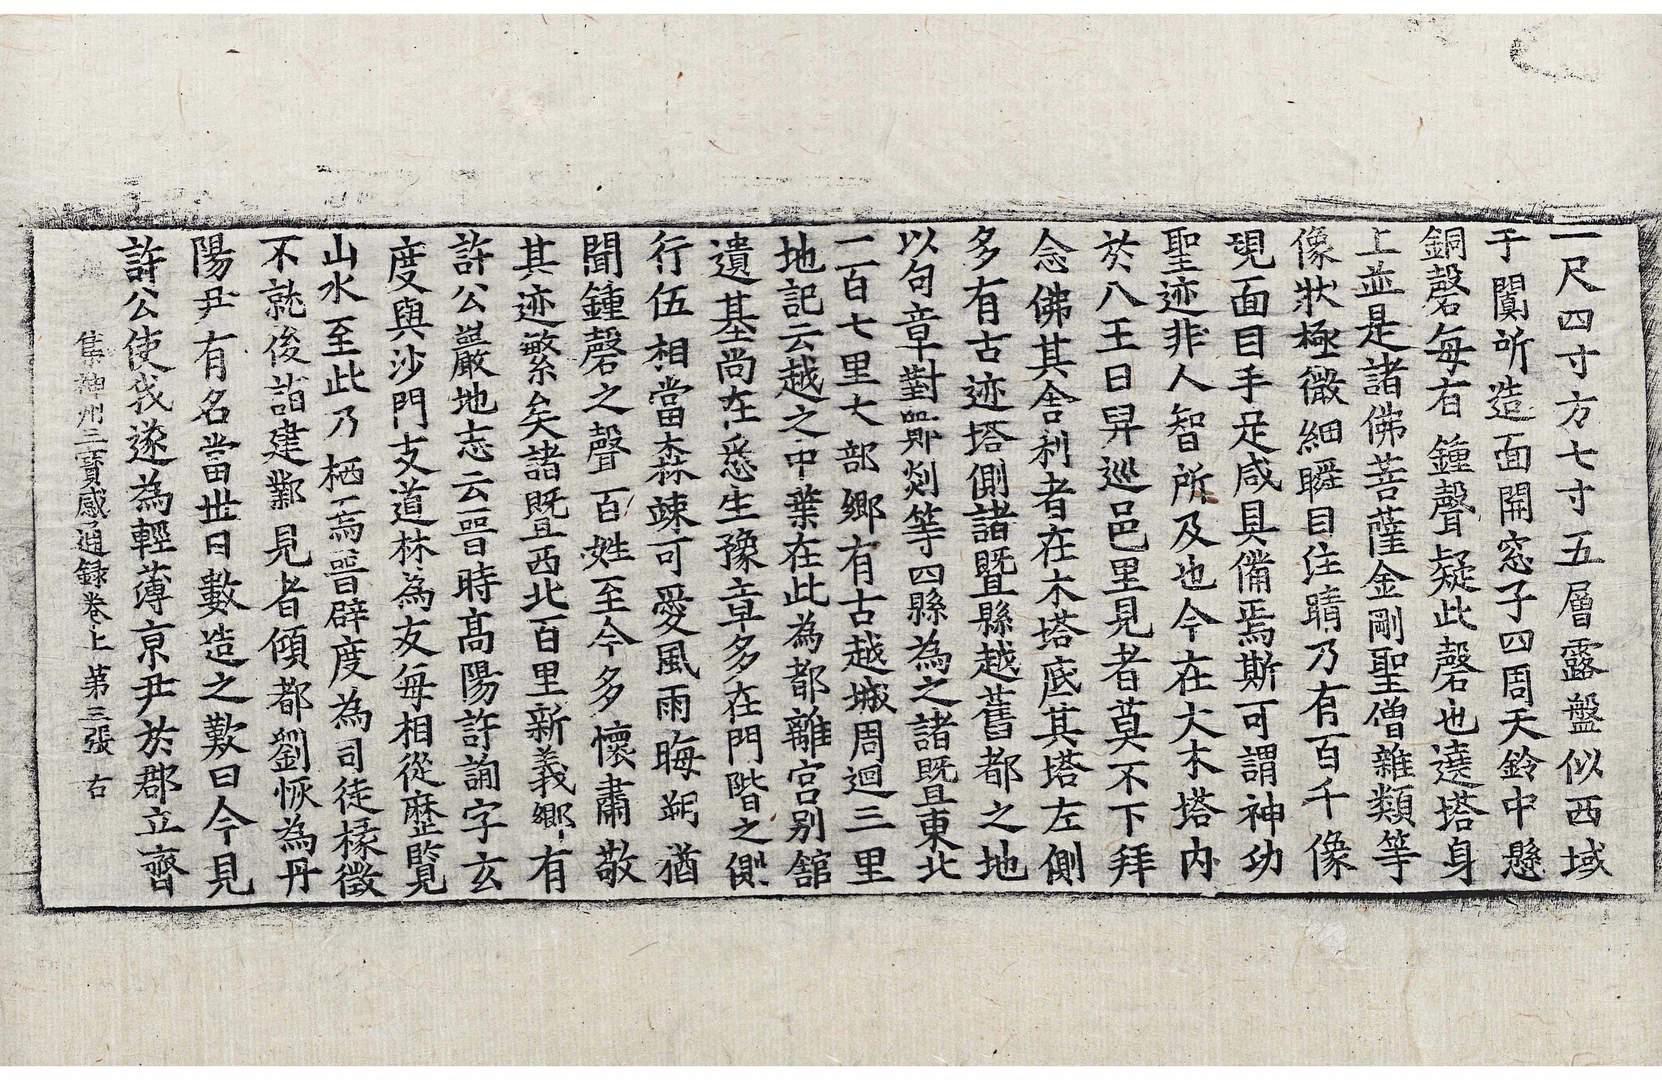 一尺四寸方七寸五層露盤似西域
于闐所造面開窓子四周天鈴中懸
銅磬每有鍾聲疑此磬也遶塔身
上並是諸佛菩薩金剛聖僧雜類等
像狀極微細瞬目注睛乃有百千像
現面目手足咸具備焉斯可謂神功
聖迹非人智所及也今在大木塔内
於八王日舁巡邑里見者莫不下拜
念佛其舍利者在木塔底其塔左側
多有古迹塔側諸暨縣越舊都之地
以句章鄮剡等四縣為之諸暨東北
一百七里大部鄉有古越城周迴三里
地記云越之中葉在此為都離宮別館
遺基尚在悉生豫章多在門階之側
行伍相當森竦可愛風雨晦朔猶
聞鍾磬之聲百姓至今多懷肅敬
其迹繁矣諸暨西北百里新義鄉有
許公巖地志云晉時高陽許詢字玄
度與沙門支道林為友每相從歷覽
山水至此乃栖焉晉辟度為司徒掾徵
不就後詣建鄴見者傾都劉恢為丹
陽尹有名當世日數造之歎曰今見
許公使我遂為輕薄京尹於郡立齋
集神州三寶感通錄卷上 第三張 右